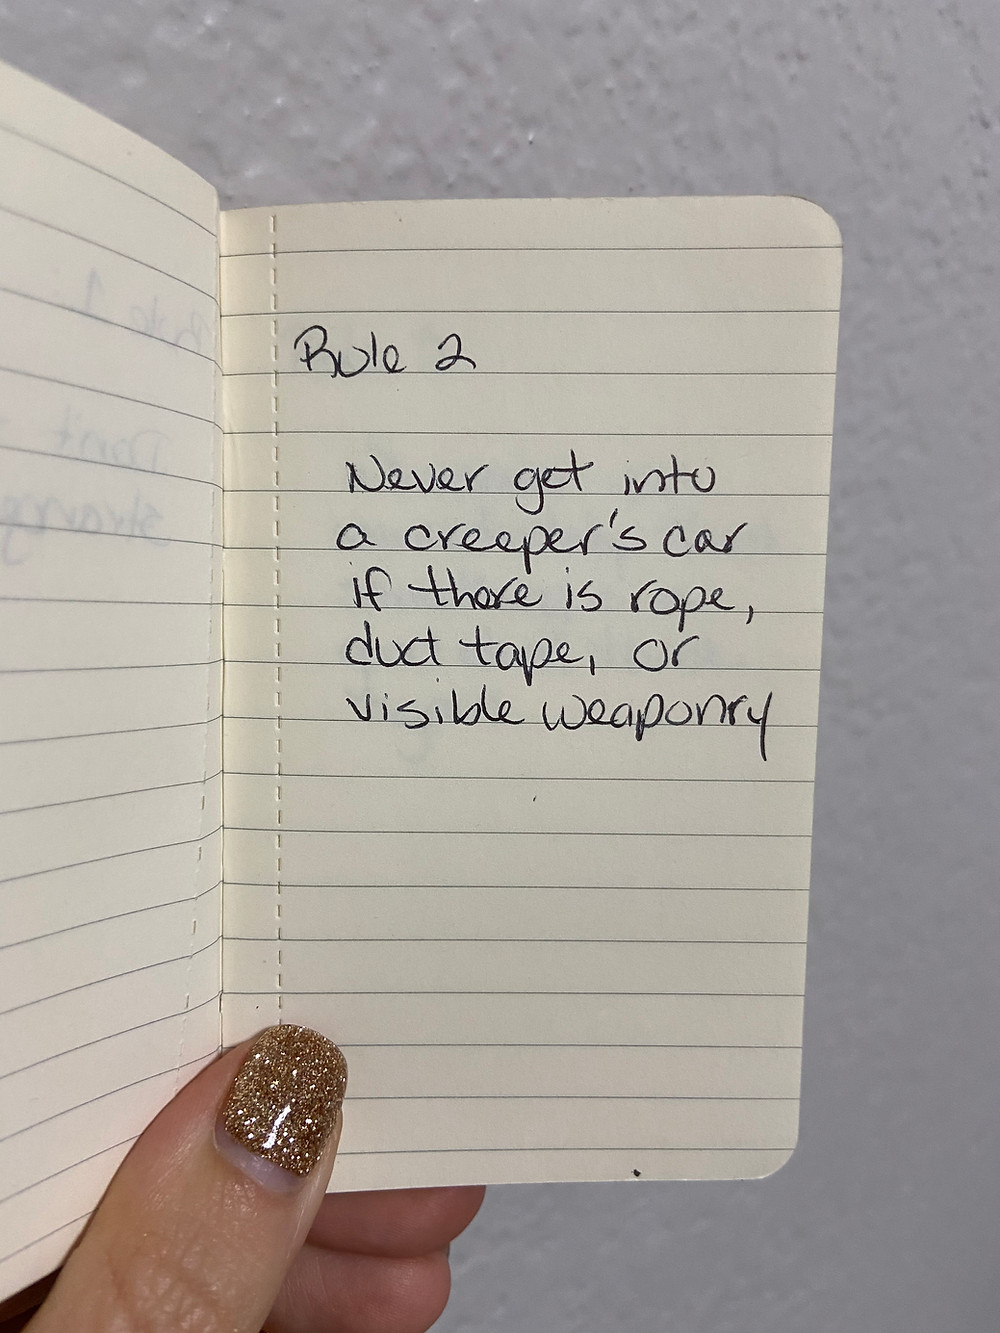 Rule 2
Never get into
a creeper's car
if there is rope,
duct tape, or
visible weaponry